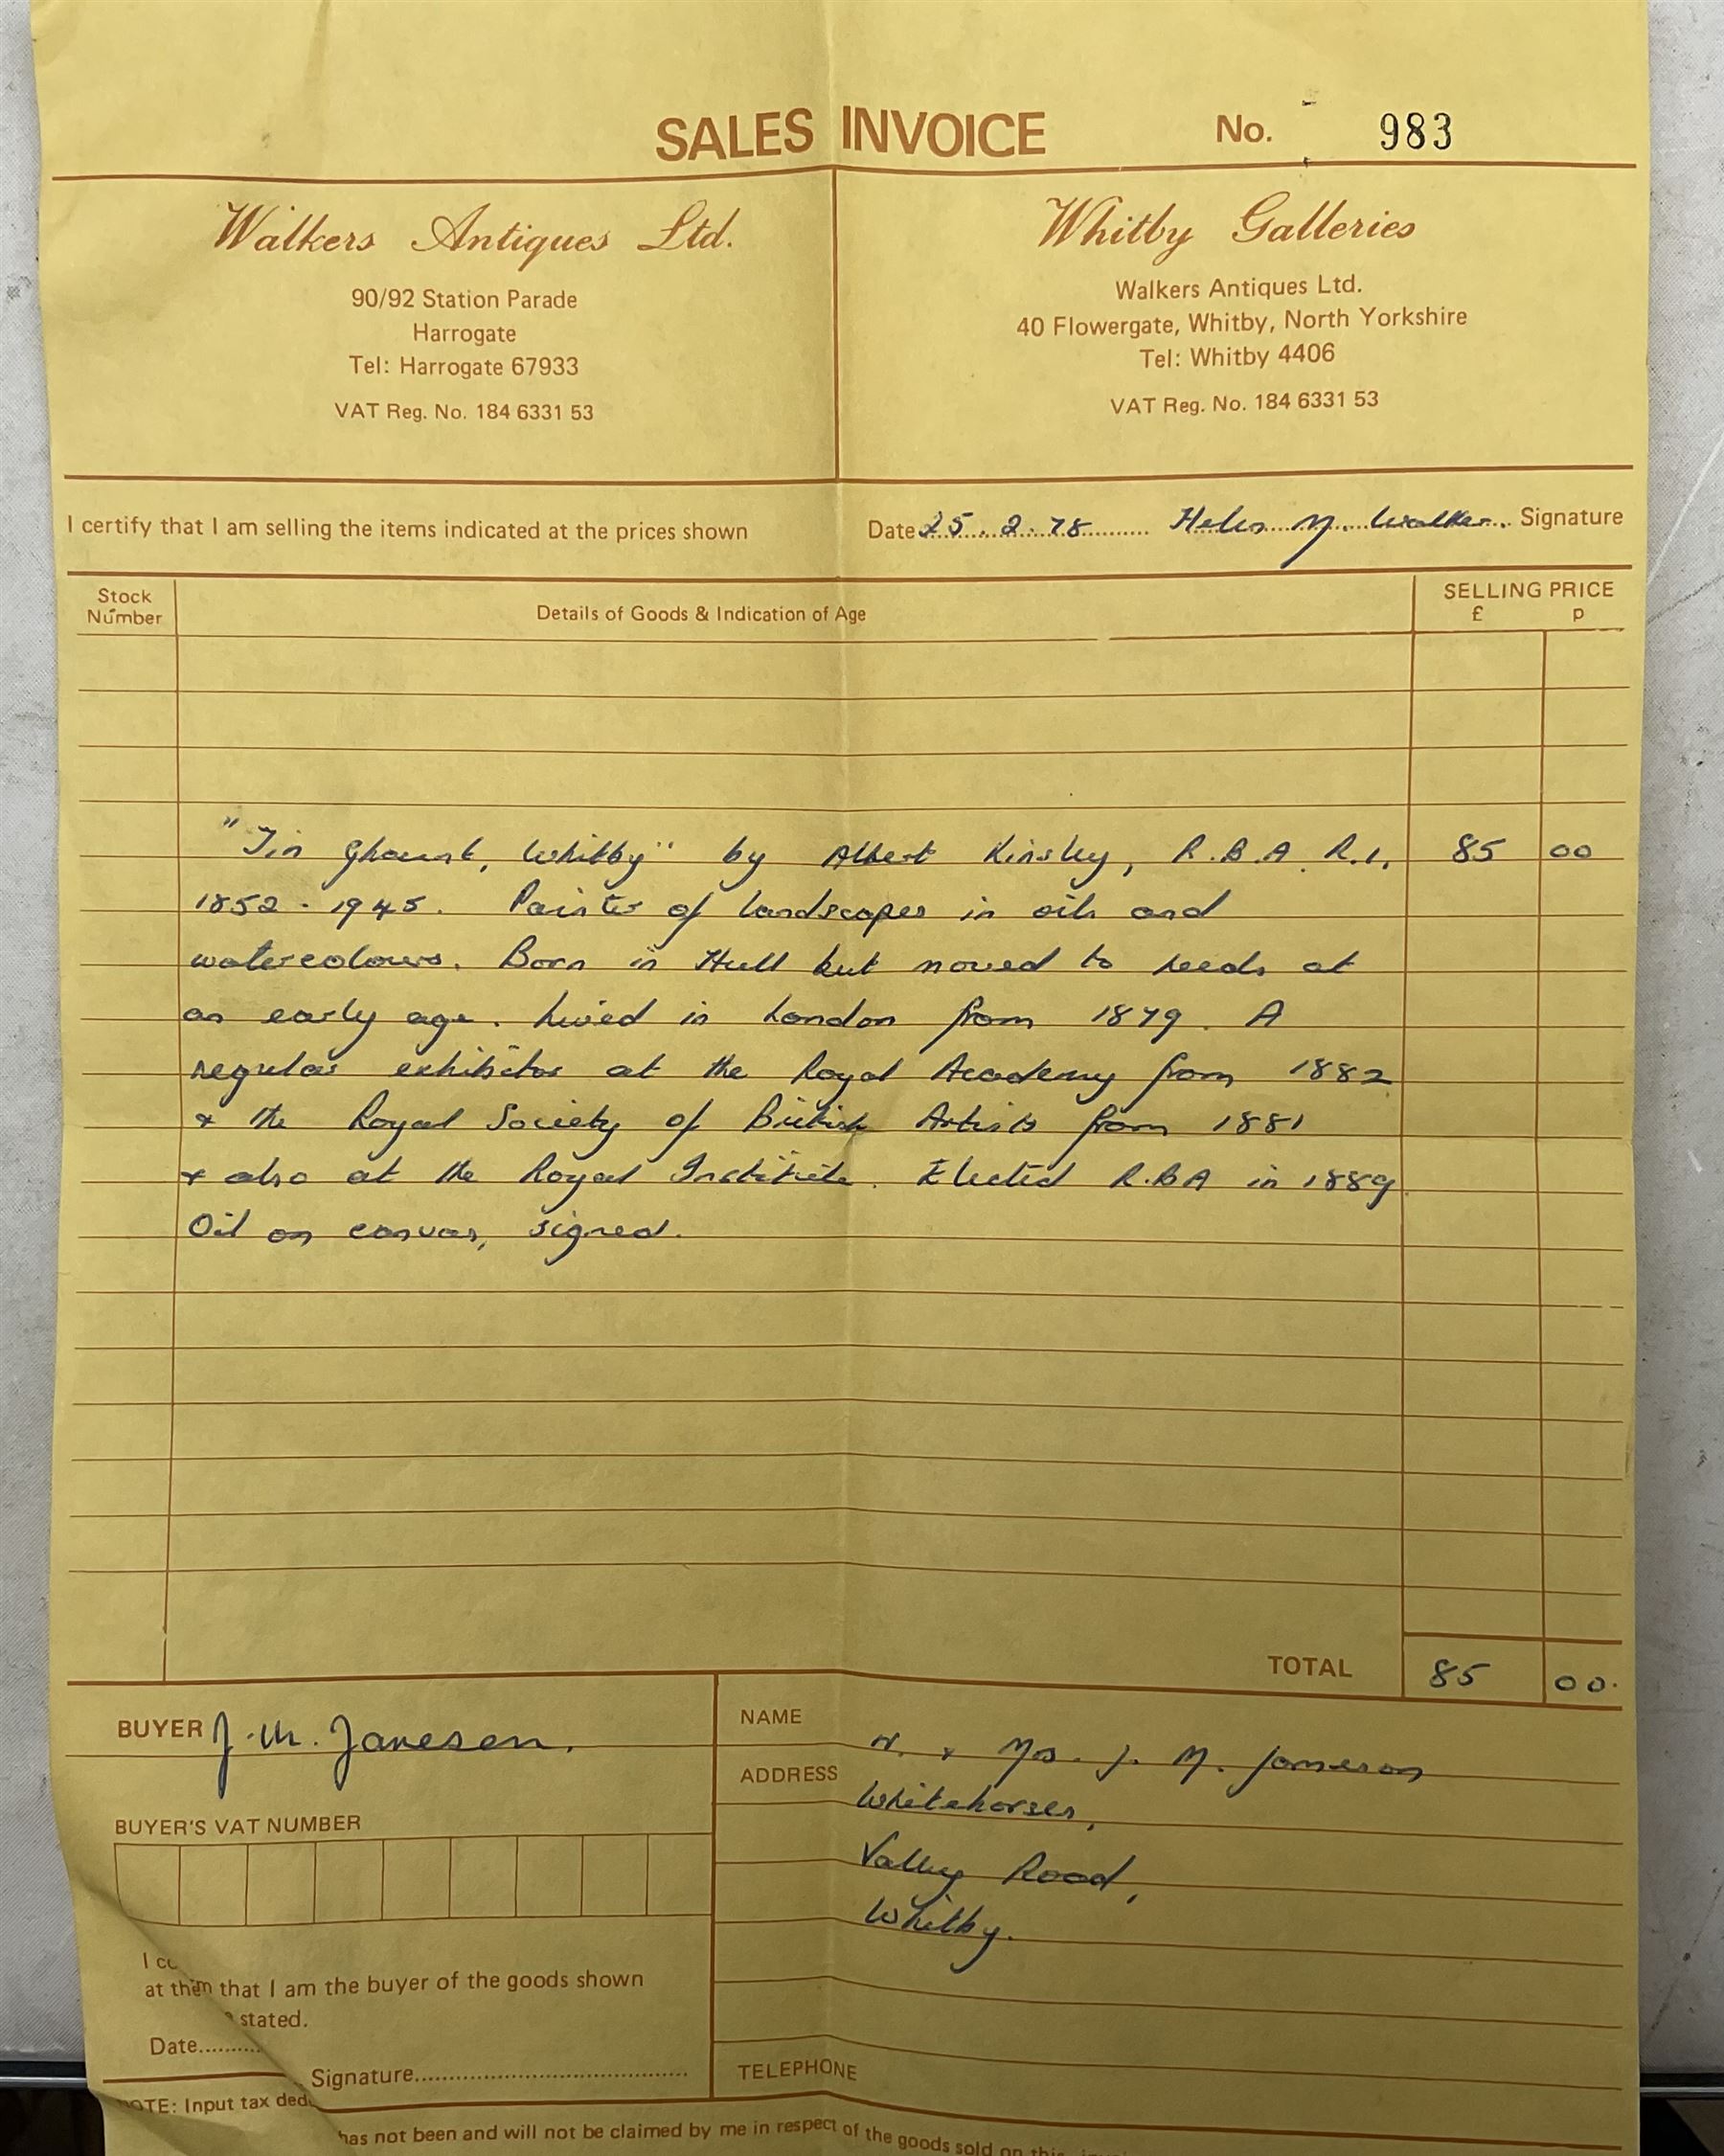 SALES INVOICE No. 983
Walkers Antiques Ltd.
90/92 Station Parade
Harrogate
Tel: Harrogate 67933
VAT Reg. No. 184 6331 53
Whitby Galleries
Walkers Antiques Ltd.
40 Flowergate, Whitby, North Yorkshire
Tel: Whitby 4406
VAT Reg. No. 184 6331 53
I certify that I am selling the items indicated at the prices shown Date 25.2.78 Helen M. Walker. Signature
Stock Number
Details of Goods & Indication of Age
SELLING PRICE
£ p
"Tin Ghaunt, Whitby" by Albert Kinsley, R.B.A. R.I. 85 00
1852 - 1945. Painter of landscapes in oils and
watercolours. Born in Hull but moved to Leeds at
an early age. Lived in London from 1879. A
regular exhibitor at the Royal Academy from 1882
& the Royal Society of British Artists from 1881
& also at the Royal Institute. Elected R.B.A in 1889
Oil on canvas, signed.
TOTAL 85 00.
BUYER J.M. Jameson.
BUYER'S VAT NUMBER
I
at them that I am the buyer of the goods shown
stated.
Date
Signature
NAME
& Mrs. J. M. Jameson
ADDRESS
Whitehorses,
Valley Road,
Whitby.
TELEPHONE
NOTE: Input tax
has not been and will not be claimed by me in respect of the goods sold on this